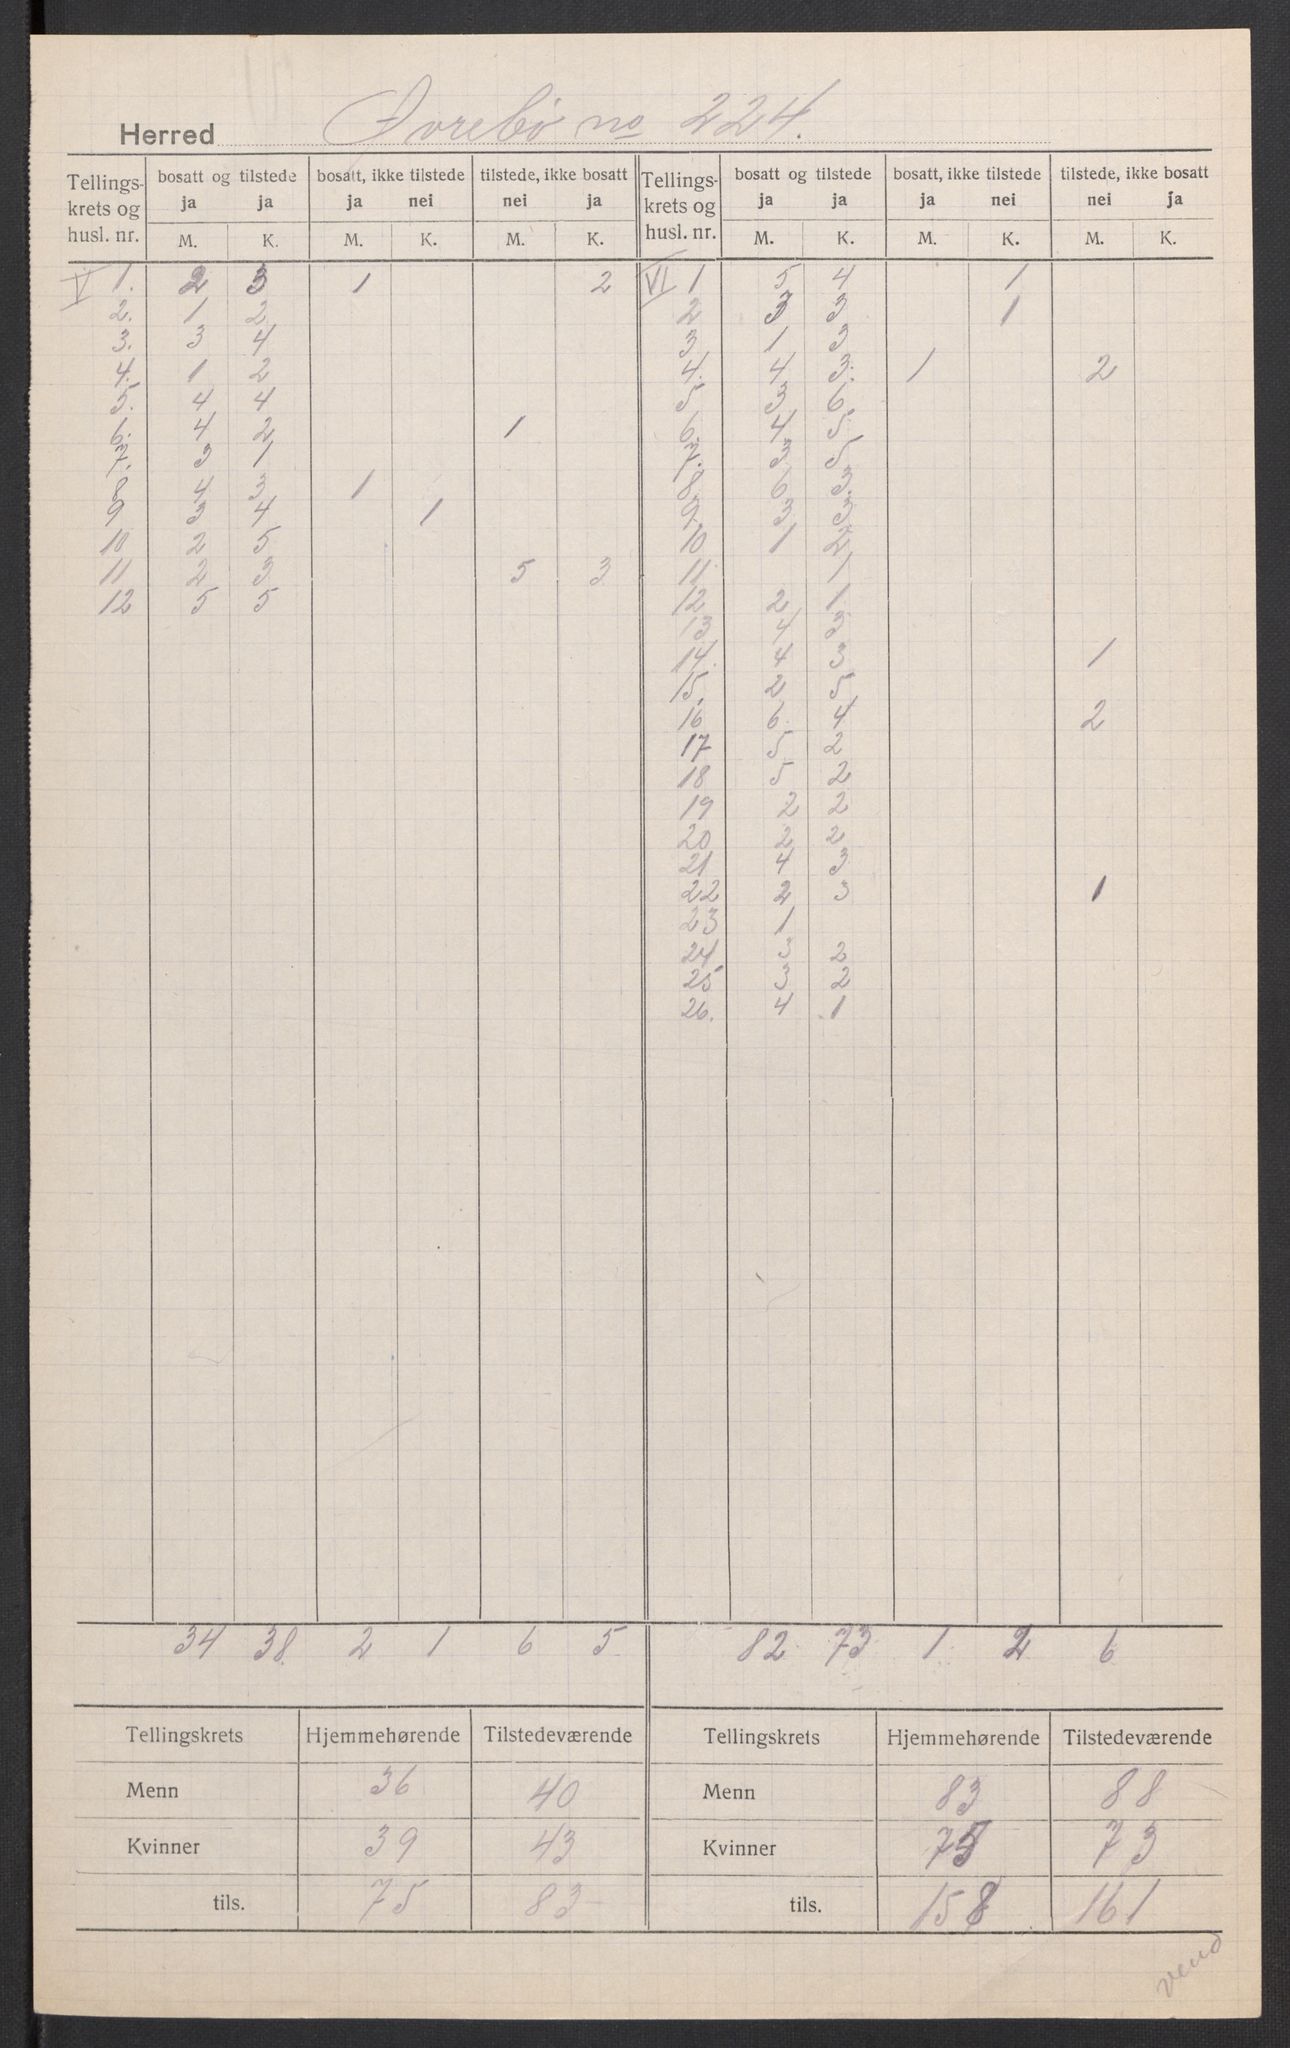 Herred Øvrebö no 224.
Tellings- bosatt og tilstede bosatt, ikke tilstede tilstede, ikke bosatt Tellings- bosatt og tilstede bosatt, ikke tilstede tilstede, ikke bosatt
krets og ja ja ja nei nei ja krets og ja ja ja nei nei ja
husl. nr. M. K. M. K. M. K. husl. nr. M. K. M. K. M. K.
V 1. 2 3 1 2 VI 1 5 4 1
2. 1 2 2 3 3 1
3. 3 4 3 1 3
4. 1 2 4. 4 3. 1 2
5. 4 4 5 3 6.
6. 4 2 1 6. 4 5.
7. 3 1 7. 3 5
8 4 3 1 8 6 3
9 3 4 1 9. 3 3.
10 2 5 10 1 2
11 2 3 5 3 11 1
12 5 5 12 2 1
13 4 3
14. 4 3 1
15. 2 5
16 6. 4 2
17 5 2
18 5 2
19 2 2
20 2 2
21 4 3
22 2 3 1
23 1
24 3 2
25 3 2
26. 4 1
34 38 2 1 6 5 82 73 1 2 6
Tellingskrets Hjemmehørende Tilstedeværende Tellingskrets Hjemmehørende Tilstedeværende
Menn 36 40 Menn 83 88
Kvinner 39 43 Kvinner 75 73
tils. 75 83 tils. 158 161
vend